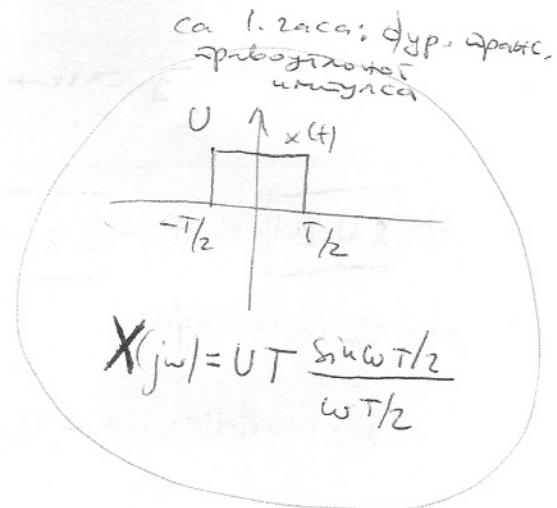 са 1. часа: фур. транс.
правоугаоног
импулса
U x(t)
-T/2 T/2
X(jω) = UT \frac{sin ωT/2}{ωT/2}